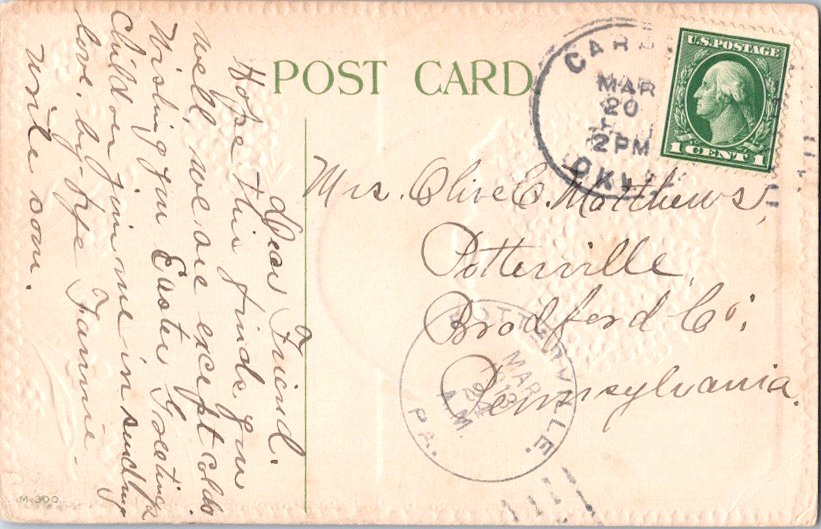 POST CARD
CAR
MAR
20
2PM
OKLA
U.S. POSTAGE
1 CENT 1
Mrs. Olive E. Matthews,
Potterville,
Bradford Co;
Pennsylvania.
POTTERVILLE.
MAR
A.M.
PA.
Dear Friend.
Hope this finds you
well, we are except colds
Wishing you Easter Greetings
Children join me in sending
love. by-bye Fannie.
write soon.
M-300